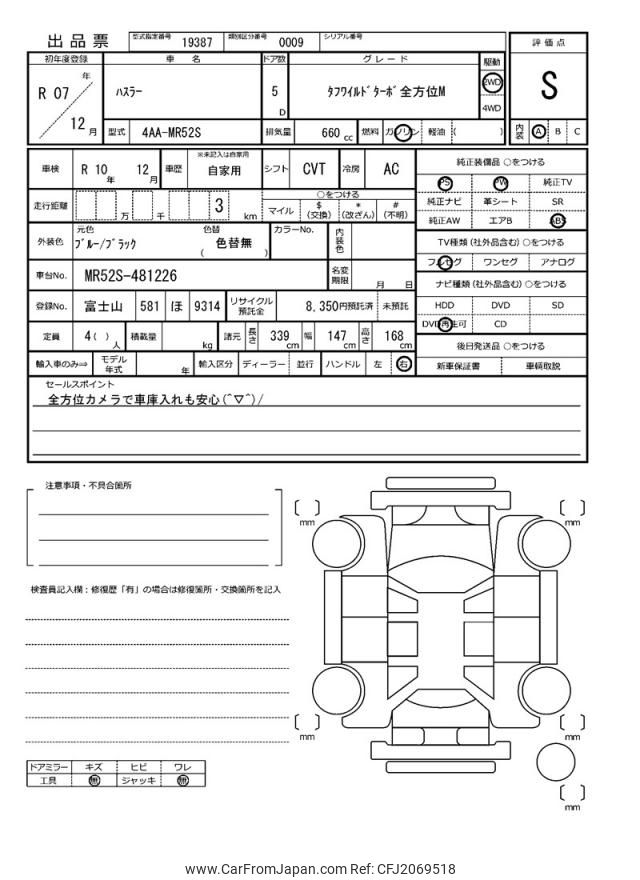 出品票 型式指定番号 19387 類別区分番号 0009 シリアル番号
評価点
S
内装 A B C
初年度登録 車名 ドア数 グレード 駆動
R 07 年 12 月 ハスラー 5 D タフワイルドターボ 全方位M 2WD 4WD
型式 4AA-MR52S 排気量 660 cc 燃料 ガソリン 軽油 ( )
車検 R 10 年 12 月 車歴 ※未記入は自家用 自家用 シフト CVT 冷房 AC
走行距離 万 千 3 km ○をつける
マイル $ (交換) * (改ざん) # (不明)
外装色 元色 ブルー/ブラック 色替 ( 色替無 ) カラーNo. 内装色
車台No. MR52S-481226 名変期限 月 日
登録No. 富士山 581 ほ 9314 リサイクル預託金 8,350円預託済 未預託
定員 4( ) 人 積載量 kg 諸元 長さ 339 cm 幅 147 cm 高さ 168 cm
輸入車のみ⇒ モデル年式 年 輸入区分 ディーラー 並行 ハンドル 左 右
純正装備品 ○をつける
PS PW 純正TV
純正ナビ 革シート SR
純正AW エアB ABS
TV種類 (社外品含む) ○をつける
フルセグ ワンセグ アナログ
ナビ種類 (社外品含む) ○をつける
HDD DVD SD
DVD再生可 CD
後日発送品 ○をつける
新車保証書 車輌取説
セールスポイント
全方位カメラで車庫入れも安心(^▽^)/
注意事項・不具合箇所
検査員記入欄：修復歴「有」の場合は修復箇所・交換箇所を記入
[ ] mm
[ ] mm
[ ] mm
[ ] mm
[ ] mm
ドアミラー キズ ヒビ ワレ
工具 無 ジャッキ 無
www.CarFromJapan.com Ref: CFJ2069518